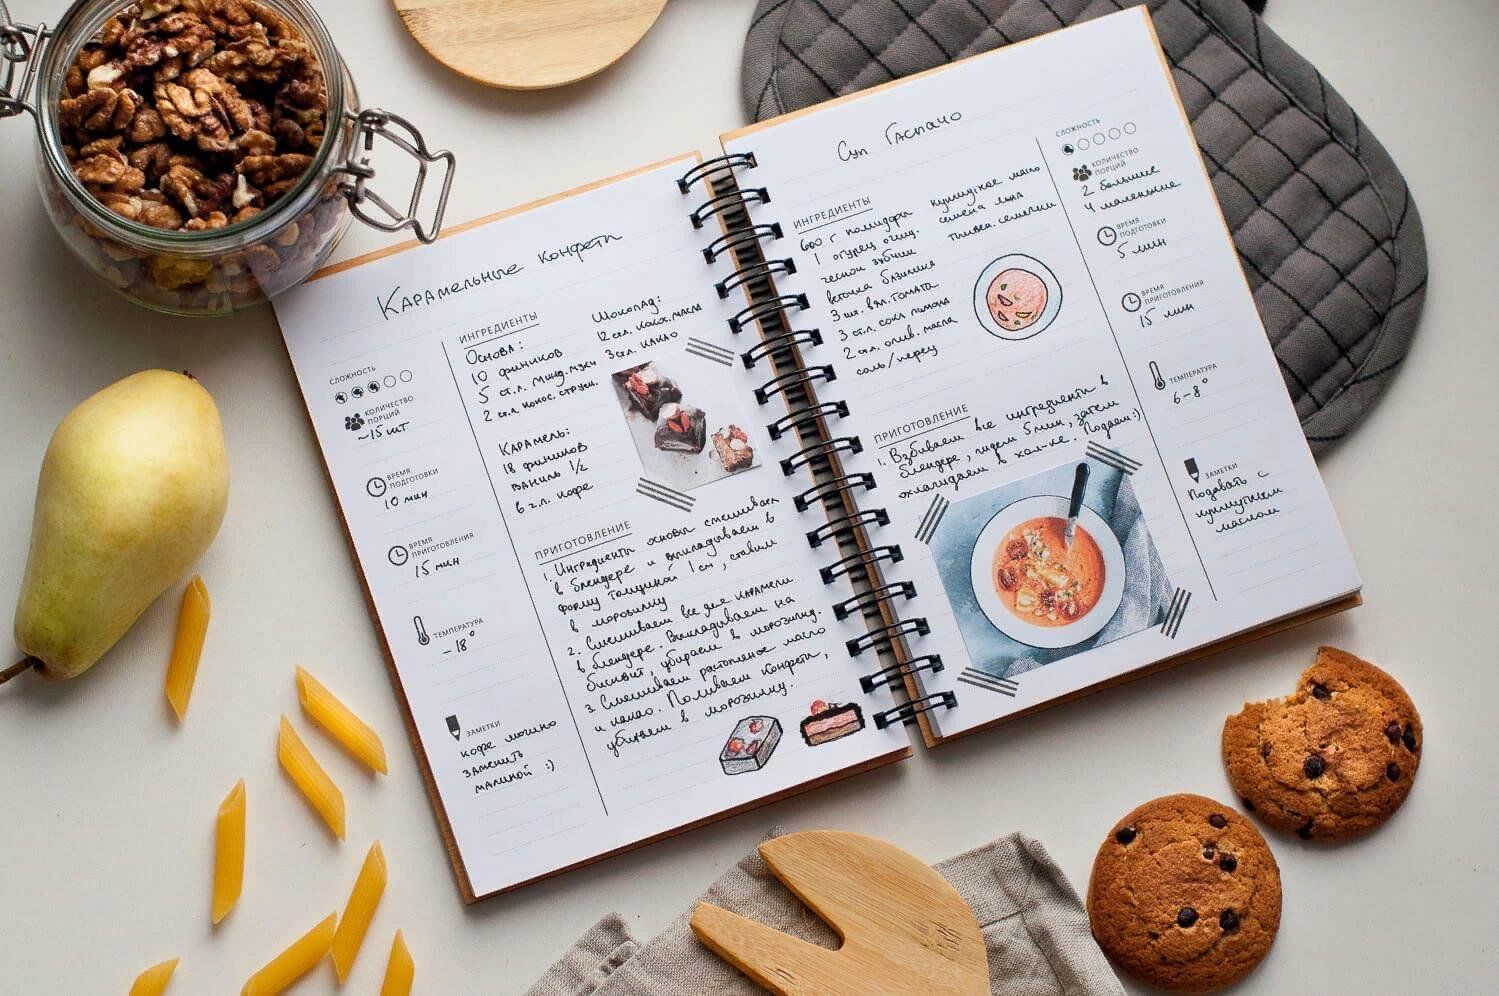 Карамельные конфеты
СЛОЖНОСТЬ
КОЛИЧЕСТВО
ПОРЦИЙ
~15 шт
ВРЕМЯ
ПОДГОТОВКИ
10 мин
ВРЕМЯ
ПРИГОТОВЛЕНИЯ
15 мин
ТЕМПЕРАТУРА
-18°
ЗАМЕТКИ
кофе можно
заменить
малиной :)
ИНГРЕДИЕНТЫ
Основа:
10 фиников
5 ст.л. минд. муки
2 ст.л. кокос. стружк.
Карамель:
18 фиников
ваниль 1/2
6 г.л. кофе
Шоколад:
12 ст.л. кокос. масла
3 ст.л. какао
ПРИГОТОВЛЕНИЕ
1. Ингредиенты основы смешиваем
в блендере и выкладываем в
форму толщиной 1 см, ставим
в морозилку
2. Смешиваем все для карамели
в блендере. Выкладываем на
бисквит, убираем в морозилку.
3. Смешиваем растопленое масло
и какао. Поливаем конфеты,
убираем в морозилку.
Суп Гаспачо
ИНГРЕДИЕНТЫ
600 г помидоры
1 огурец очищ.
чеснок зубчик
веточка базилика
3 шт. вял. томата
3 ст. сока лимона
2 ст.л. олив. масла
соль/перец
кунжутное масло
семена льна
тыквен. семечки
ПРИГОТОВЛЕНИЕ
1. Взбиваем все ингредиенты в
блендере, 5 мин, затем
охлаждаем в хол-ке. Подаем :)
СЛОЖНОСТЬ
КОЛИЧЕСТВО
ПОРЦИЙ
2 большие
4 маленькие
ВРЕМЯ
ПОДГОТОВКИ
5 мин
ВРЕМЯ
ПРИГОТОВЛЕНИЯ
15 мин
ТЕМПЕРАТУРА
6-8°
ЗАМЕТКИ
Подавать с
кунжутным
маслом